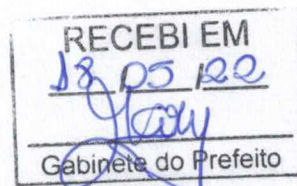 RECEBI EM
18/05/22
Gabinete do Prefeito